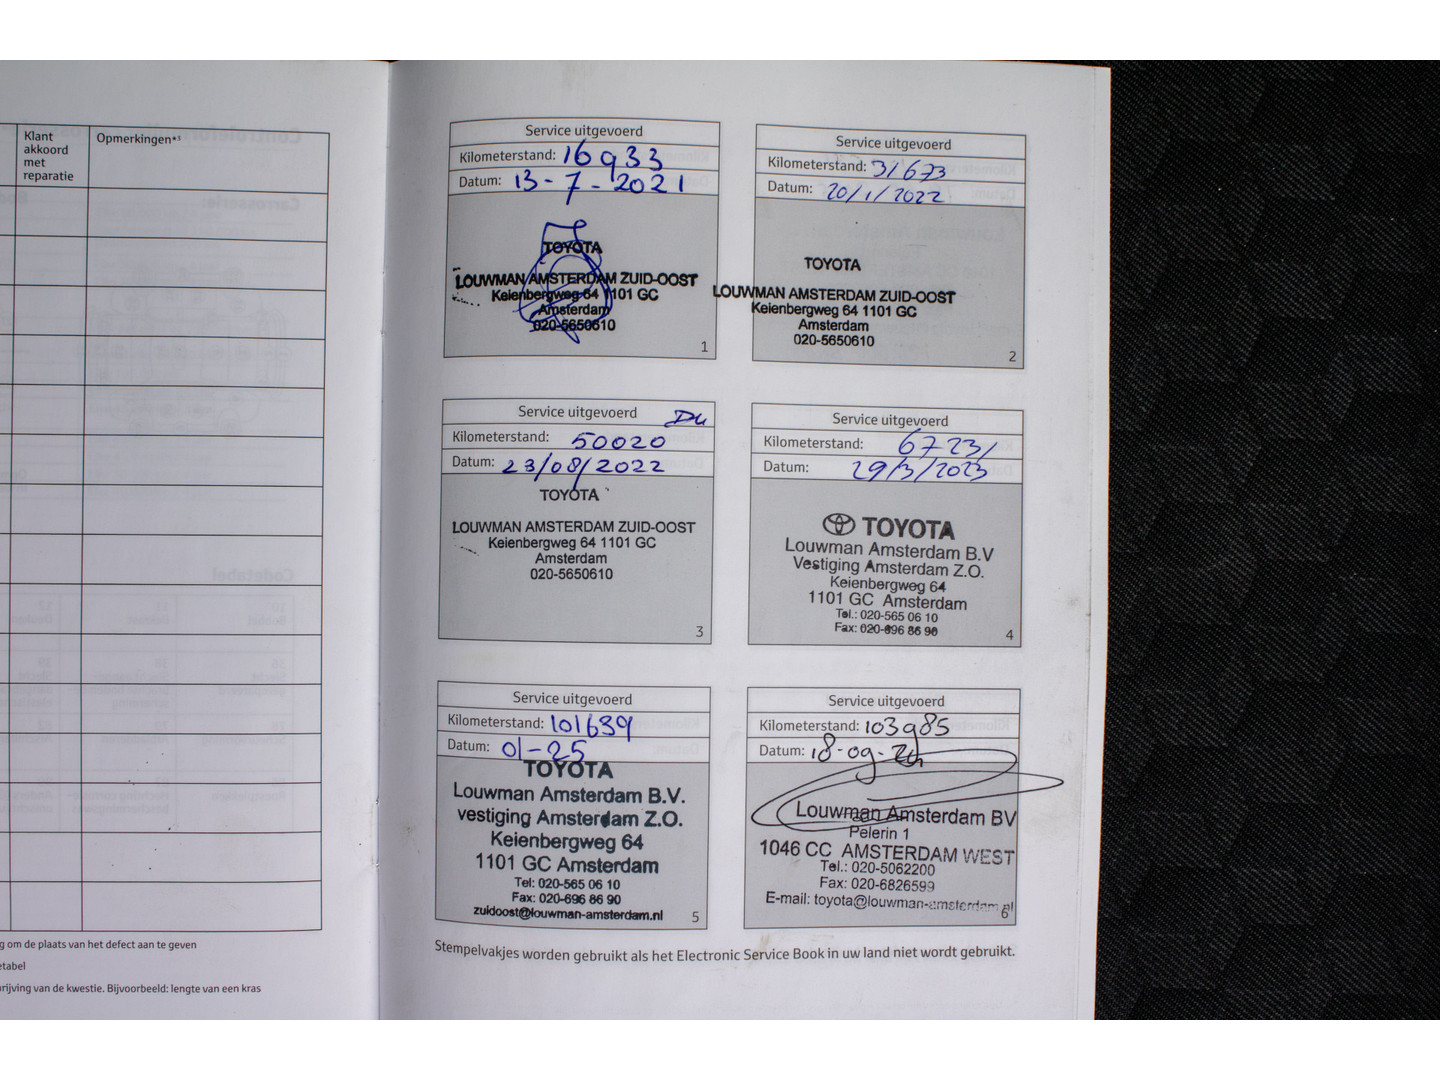 Klant
akkoord
met
reparatie
Opmerkingen*³
g om de plaats van het defect aan te geven
etabel
rijving van de kwestie. Bijvoorbeeld: lengte van een kras
Service uitgevoerd
Kilometerstand: 16933
Datum: 13-7-2021
TOYOTA
LOUWMAN AMSTERDAM ZUID-OOST
Keienbergweg 64 1101 GC
Amsterdam
020-5650610
1
Service uitgevoerd
Kilometerstand: 31673
Datum: 20/1/2022
TOYOTA
LOUWMAN AMSTERDAM ZUID-OOST
Keienbergweg 64 1101 GC
Amsterdam
020-5650610
2
Service uitgevoerd
Kilometerstand: 50020
Datum: 23/08/2022
TOYOTA
LOUWMAN AMSTERDAM ZUID-OOST
Keienbergweg 64 1101 GC
Amsterdam
020-5650610
3
Service uitgevoerd
Kilometerstand: 67231
Datum: 29/3/2023
TOYOTA
Louwman Amsterdam B.V
Vestiging Amsterdam Z.O.
Keienbergweg 64
1101 GC Amsterdam
Tel.: 020-565 06 10
Fax: 020-696 86 90
4
Service uitgevoerd
Kilometerstand: 101639
Datum: 01-25
TOYOTA
Louwman Amsterdam B.V.
vestiging Amsterdam Z.O.
Keienbergweg 64
1101 GC Amsterdam
Tel: 020-565 06 10
Fax: 020-696 86 90
zuidoost@louwman-amsterdam.nl
5
Service uitgevoerd
Kilometerstand: 103985
Datum: 18-09-24
Louwman Amsterdam BV
Pelerin 1
1046 CC AMSTERDAM WEST
Tel.: 020-5062200
Fax: 020-6826599
E-mail: toyota@louwman-amsterdam.nl
6
Stempelvakjes worden gebruikt als het Electronic Service Book in uw land niet wordt gebruikt.